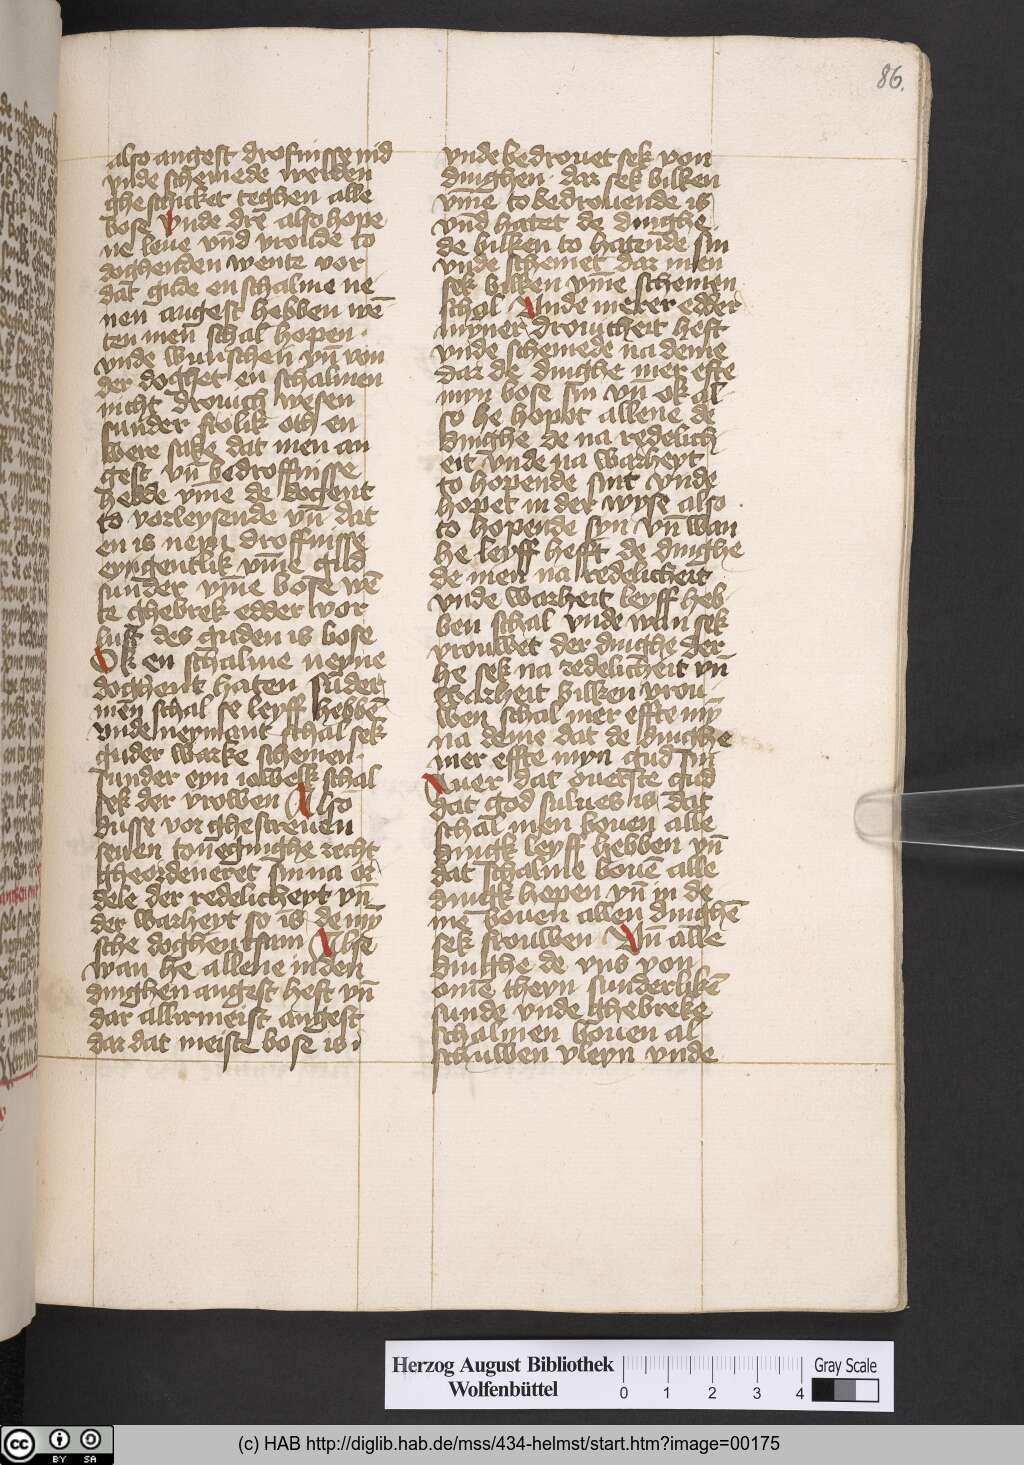 86.
also angest drofnisse nid
vnde schemede werden
gheschicket teghen alle
bose vnde dre also hope
ne leue vnd vroude to
doghenden wente vor
dat gude en schalme ne
nen angest hebben wē
ten men schal hopen
vnde wunschen vn̄ von
der doghet en schalmen
nicht drouich wesen
sunder frolik oth en
were sake dat men an
gest vn̄ bedroffnisse
hedde vm̄e de docsent
to vorleysende vn̄ dat
en is neyn droffnisse
eyngentlik vm̄e gud
sunder vm̄e bose wē
te ghebrek edder vor
lust des guden is bose
Ok en schalme neyne
doghent haten sūder
men schal se leyff hebbē
vnde neyment schal sek
guder warke schemen
sunder eyn iowelk schal
sek der vrowen Also
dusse vorghescreuen
seuen toneginghe recht
gheordeneret sin na or
dele der redelicheyt vn̄
der warheyt so is de mȳ
sche doghentsam Alse
wan he allene in den
dinghen angest heft vn̄
dar allirmeist angest
dar dat meiste bose is
vnde bedrouet sek von
dinghen dar sek bilken
vm̄e to bedrouende is
vnd hatet de dinghe
de bilken to hatende sin
vnde schemet dar men
sek bilken vm̄e schemen
schal Vnde merer edder
mynner drouicheit heft
vnde schemede na deme
dar de dinghe mer efte
myn bose sin vn̄ ok al
so he hopet allene de
dinghe de na redelich
eit vnde na warheyt
to hopende sint vnde
hopet in der wyse also
to hopende syn vn̄ wan
he leyff hefft de dinghe
de men na redelicheit
vnde warheit leyff heb
ben schal vnde wan sek
vrouwet der dinghe der
he sek na redelicheit vn̄
warheit bilken vrou
wen schal mer effte mȳ
na deme dat de dinghe
mer effte myn gud sin
Auer dat ouerste gud
dat god sulues is dat
schal men bouen alle
dingk leyff hebben vn̄
dat schalme bouē alle
dingk hopen vn̄ in de
me bouen allen dinghē
sek frouwen Vn̄ alle
dinghe de vns von
ome theyn sunderlikē
sunde vnde ghebreke
schalmen bouen al
schuwen vleyn vnde
Herzog August Bibliothek
Wolfenbüttel
0 1 2 3 4
Gray Scale
cc BY SA
(c) HAB http://diglib.hab.de/mss/434-helmst/start.htm?image=00175